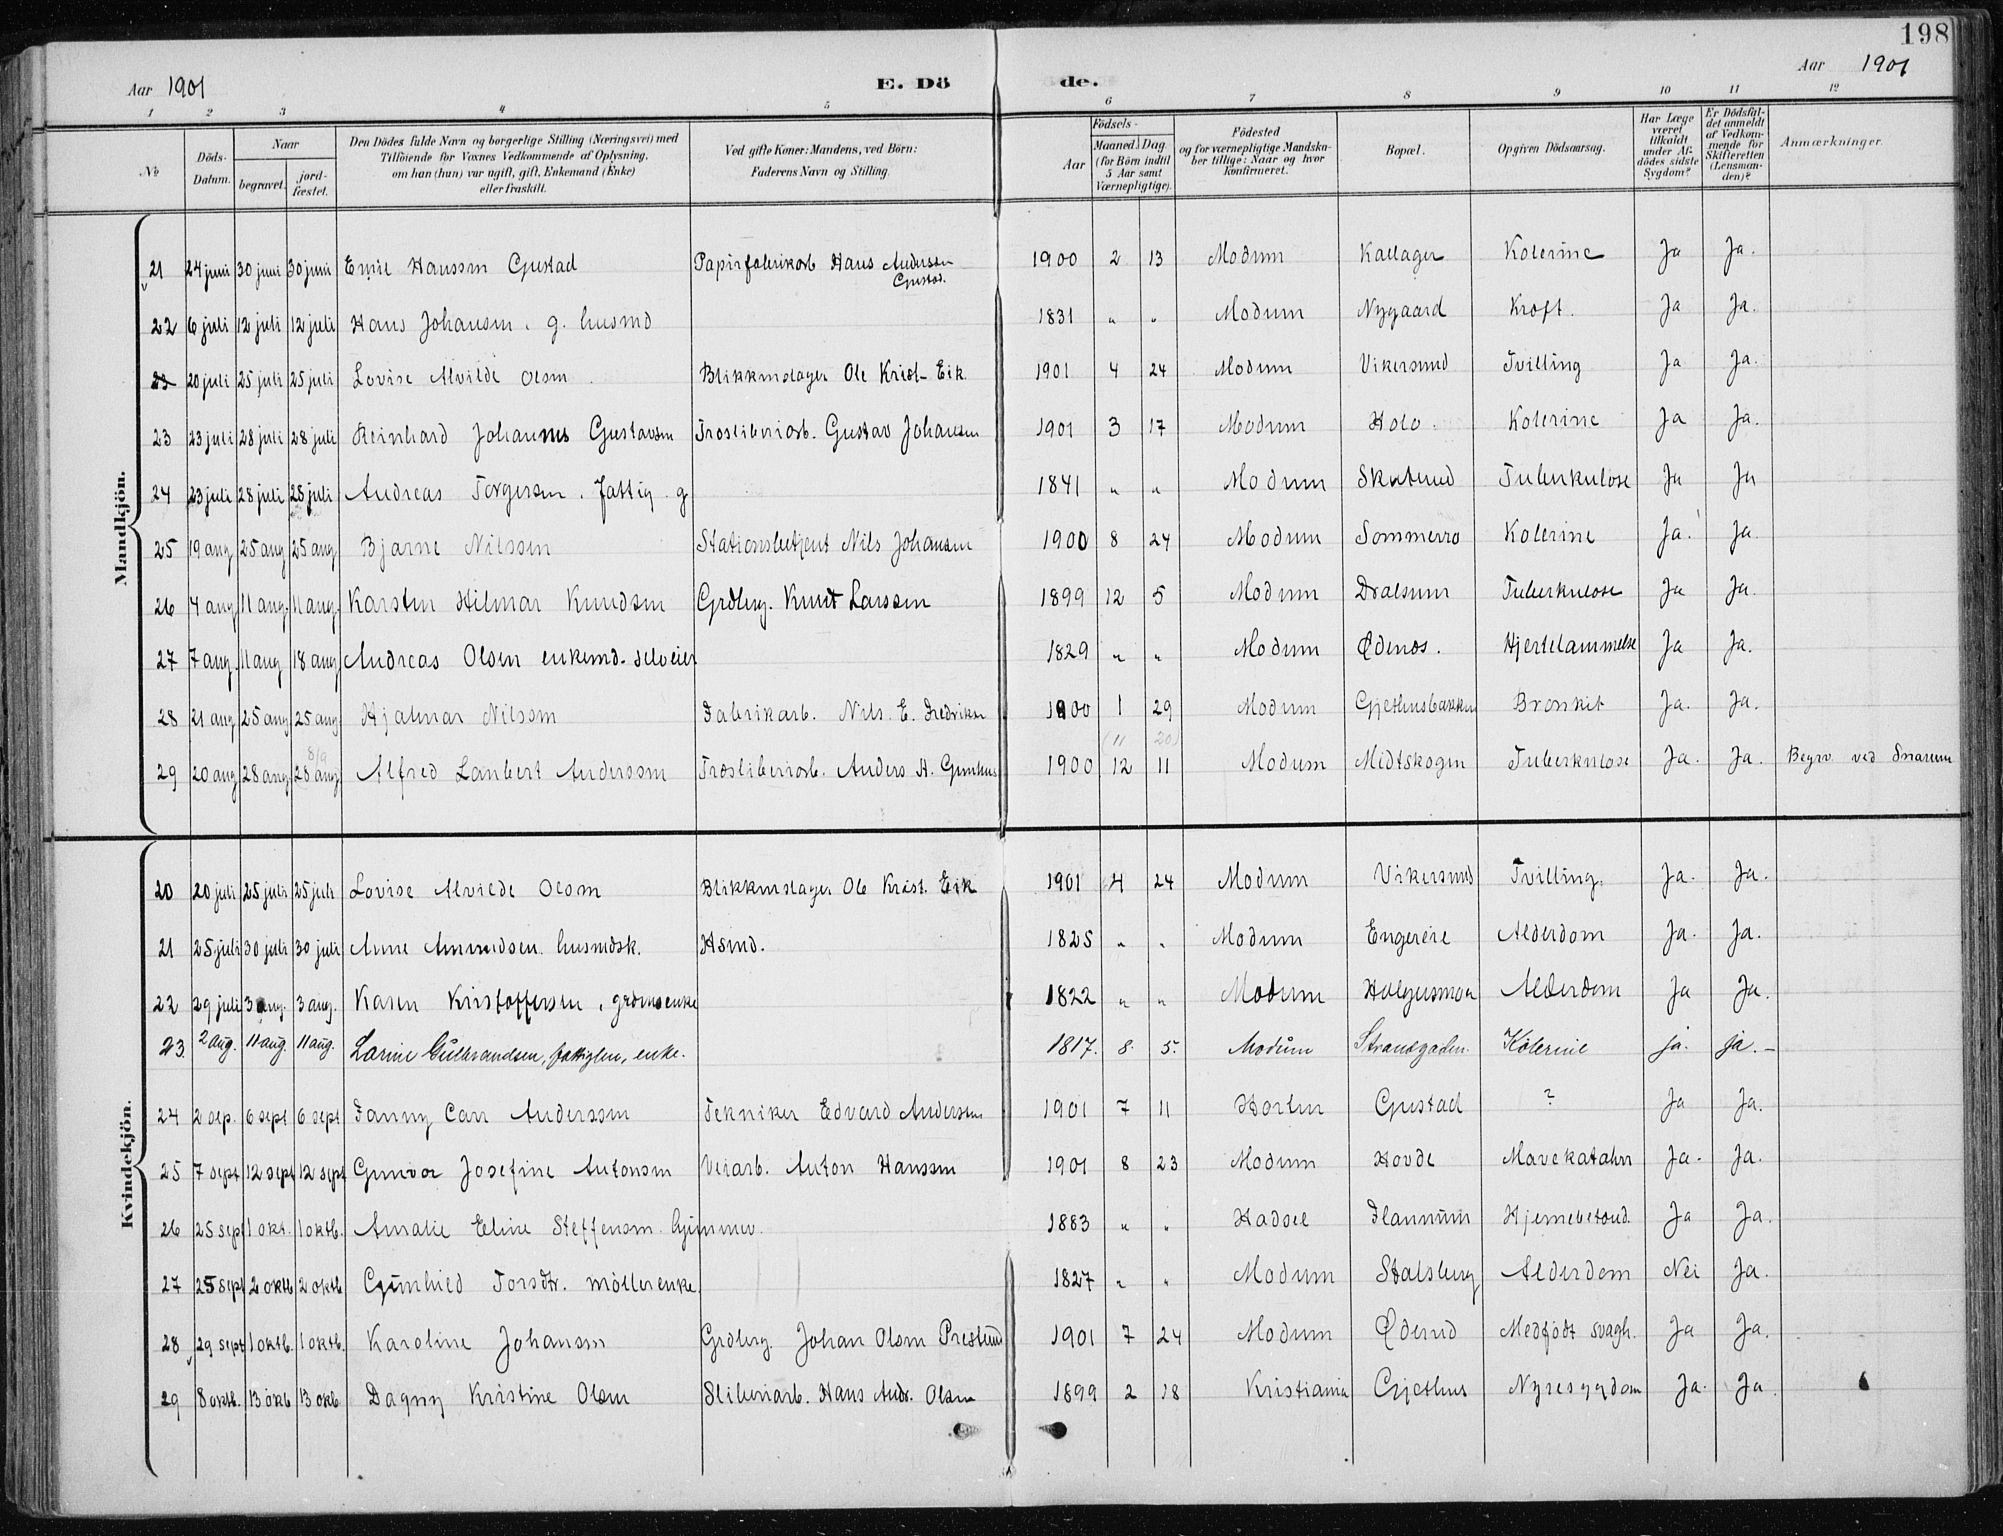 198
Aar 1901 E. Döde. Aar 1901
1 2 3 4 5 6 7 8 9 10 11 12
№ Döds-Datum. Naar begravet. jordfæstet. Den Dödes fulde Navn og borgerlige Stilling (Næringsvei) med Tilföiende for Voxnes Vedkommende af Oplysning, om han (hun) var ugift, gift, Enkemand (Enke) eller fraskilt. Ved gifte Koner: Mandens, ved Börn: Faderens Navn og Stilling. Födsels- Aar Maaned. Dag (for Börn indtil 5 Aar samt Værnepligtige). Födested og for værnepligtige Mandskaber tillige: Naar og hvor konfirmeret. Bopæl. Opgiven Dödsaarsag. Har Læge været tilkaldt under Afdödes sidste Sygdom? Er Dödsfaldet anmeldt af Vedkommende for Skifteretten (Lensmanden)? Anmærkninger.
Mandkjön.
21 24 juni 30 juni 30 juni Emil Hanssen Gustad Papirfabrikarb Hans Anderssen Gustad. 1900 2 13 Modum Kallager Kolerine Ja Ja.
22 6 juli 12 juli 12 juli Hans Johansen. g. husmd 1831 " " Modum Nygaard Kræft. Ja Ja.
23 20 juli 25 juli 25 juli Lovise Alvilde Olsen Blikkenslager Ole Krist. Eik 1901 4 24 Modum Vikersund Tvilling Ja Ja.
23 23 juli 28 juli 28 juli Reinhard Johannes Gustavsen Træsliberiarb. Gustav Johansen 1901 3 17 Modum Holo. Kolerine Ja Ja.
24 23 juli 28 juli 28 juli Andreas Torgersen. Fattig. g 1841 " " Modum Skuterud Tuberkulose Ja Ja
25 19 aug 25 aug 25 aug Bjarne Nilssen Stationsbetjent Nils Johansen 1900 8 24 Modum Sommerro Kolerine Ja. Ja
26 4 aug 11 aug. 11 aug. Karsten Hilmar Knudsen Grdbrg. Knut Larssen 1899 12 5 Modum Dralsum Tuberkulose Ja Ja.
27 7 aug. 11 aug 18 aug Andreas Olsen enkemd. selveier 1829 " " Modum Ødenæs. Hjertelammelse Ja Ja.
28 21 aug 25 aug 25 aug Hjalmar Nilssen Fabrikarb. Nils. E. Fredriksen 1900 1 29 Modum Gjethusbakken Bronkit Ja. Ja.
8/9 (11 20)
29 20 aug 28 aug 28 aug Alfred Lambert Anderssen Træsliberiarb. Anders A. Grønhus 1900 12 11 Modum Midtskogen Tuberkulose Ja. Ja. Begrv. ved Snarum
Kvindekjön.
20 20 juli 25 juli 25 juli Lovise Alvilde Olsen Blikkenslager Ole Krist. Eik 1901 4 24 Modum Vikersund Tvilling. Ja. Ja.
21 25 juli 30 juli 30 juli Anne Amundsen. husmdsk. Hsmd. 1825 " " Modum Engereie Alderdom Ja. Ja.
22 29 juli 3 aug. 3 aug. Karen Kristoffersen, grdmsenke 1822 " " Modum Alderdom Ja Ja.
23. 2 aug. 11 aug. 11 aug. Larine Gulbrandsen, fattiglem, enke. 1817. 8. 5. Modum Strandgaden. Kolerine ja. ja. –
24 2 sep. 6 sept 6 sept Fanny Carr Anderssen Tekniker Edvard Anderssen 1901 7 11 Horten Gustad ? Ja Ja.
25 7 sept 12 sept 12 sept Gunvor Josefine Antonsen Veiarb. Anton Hanssen 1901 8 23 Modum Hovde Mavekatahr Ja. Ja.
26 25 sept 1 okt. 1 oktb. Amalie Eline Steffensen 1883 " " Hadsel Flannum Hjernebetænd. Ja Ja.
27 25 sept 2 oktb 2 oktb Gunhild Torsdtr. möllerenke. 1827 " " Modum Stalsberg Alderdom Nei Ja.
28 29 sept 1 oktb. 1 oktb. Karoline Johansen Grdbrg. Johan Olsen Presterud 1901 7 24 Modum Øderud Medfødt svagh. Ja Ja.
29 8 oktb. 13 okb 13 okb Dagny Kristine Olsen Sliberiarb. Hans Andr. Olsen 1899 2 18 Kristiania Gjethus Nyresygdom Ja. Ja.